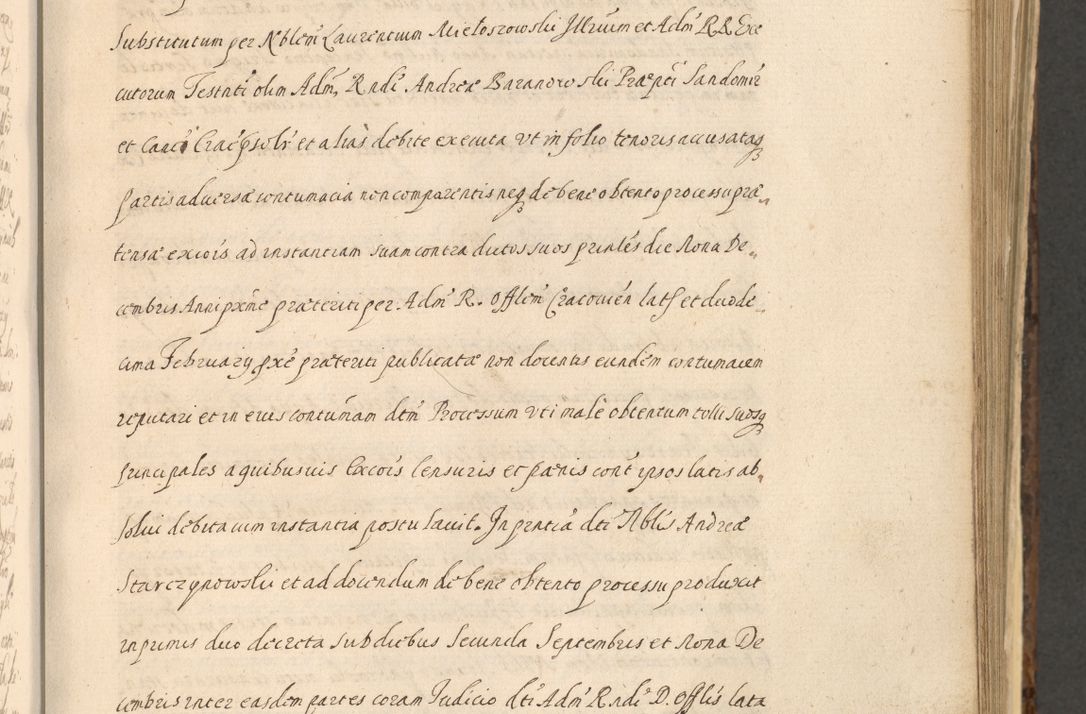 Substitutum per Nblem Laurentium Mietoszowski Illrium et Adm RR. Exe
cutorum Testnti olim Adm, Rndi Andreæ Baranowskii Præpti Sandomir
et Canci Crac psolr et alias debite executa vt in folio tenoris accusatasq
partis aduersæ contumacia non comparentis neq de bene obtento processu præ
tensæ excois ad instantiam suam contra dictos suos prinles die Nona De
cembris Anni pxme præteriti per Adm R. Offlem Cracouien lats et duode
cima February pxe præteriti publicatæ non docentis eundem contumacem
reputari et in eius contumam dtm Processum vti male obtentum tolli suosq
principales a quibusuis Excois Censuris et pænis cont ipsos latis ab
solui debita cum instantia postulauit. In pntia dti Nblis Andreæ
Starczynowskii et ad docendum de bene obtento processu produxit
inprimis duo decreta sub diebus Secunda Septembris et Nona De
cembris inter easdem partes coram Iudicio dti Adm Rndi D. Offlis lata